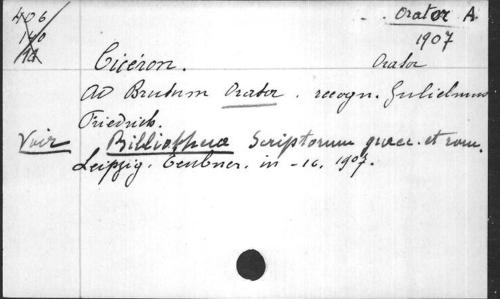 406
140
11
Orator A
1907
Cicéron. Orator
Ad Brutum Orator. recogn. Gulielmus
Friedrich.
Voir Bibliotheca Scriptorum graec. et rom.
Leipzig. Teubner. in-16. 1907.